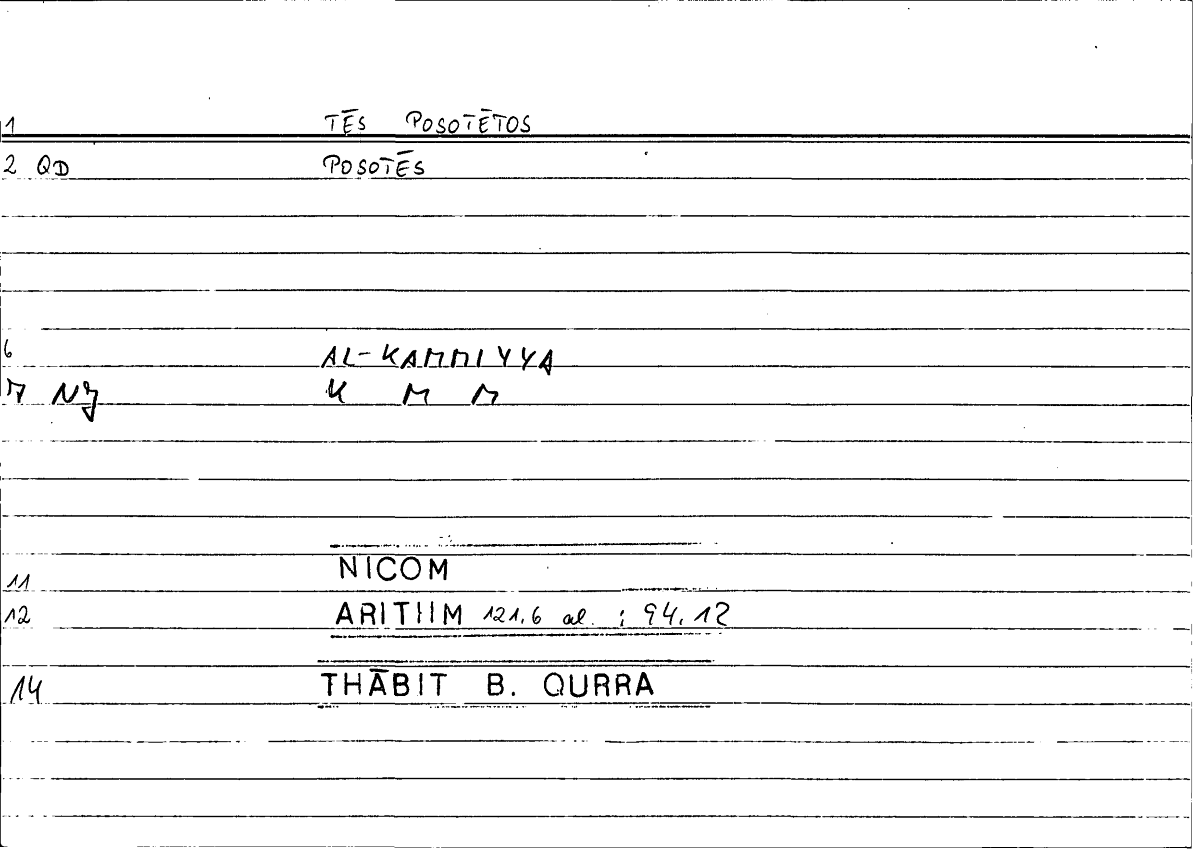 1 TĒS POSOTĒTOS
2 QD POSOTĒS
6 AL-KAMMIYYA
7 NJ K M M
11 NICOM
12 ARITHM 121.6 al. ; 94.12
14 THĀBIT B. QURRA